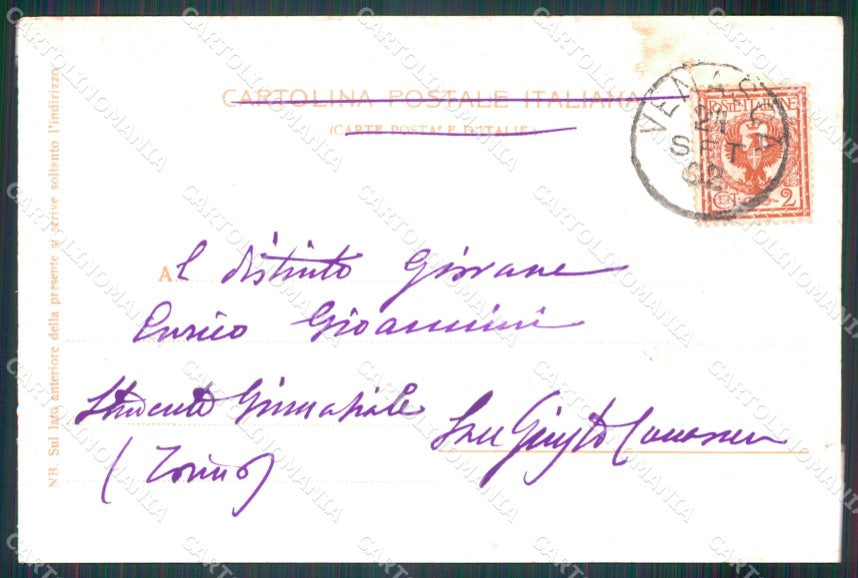 CARTOLINA POSTALE ITALIANA
(CARTE POSTALE D'ITALIE)
VENASCA
21
SET
02
POSTE ITALIANE
CEN. 2
NB. Sul lato anteriore della presente si scrive soltanto l'indirizzo.
A l distinto Giovane
Enrico Gioannini
Studente Ginnasiale
San Giusto Canavese
(Torino)
CARTOLINOMANIA